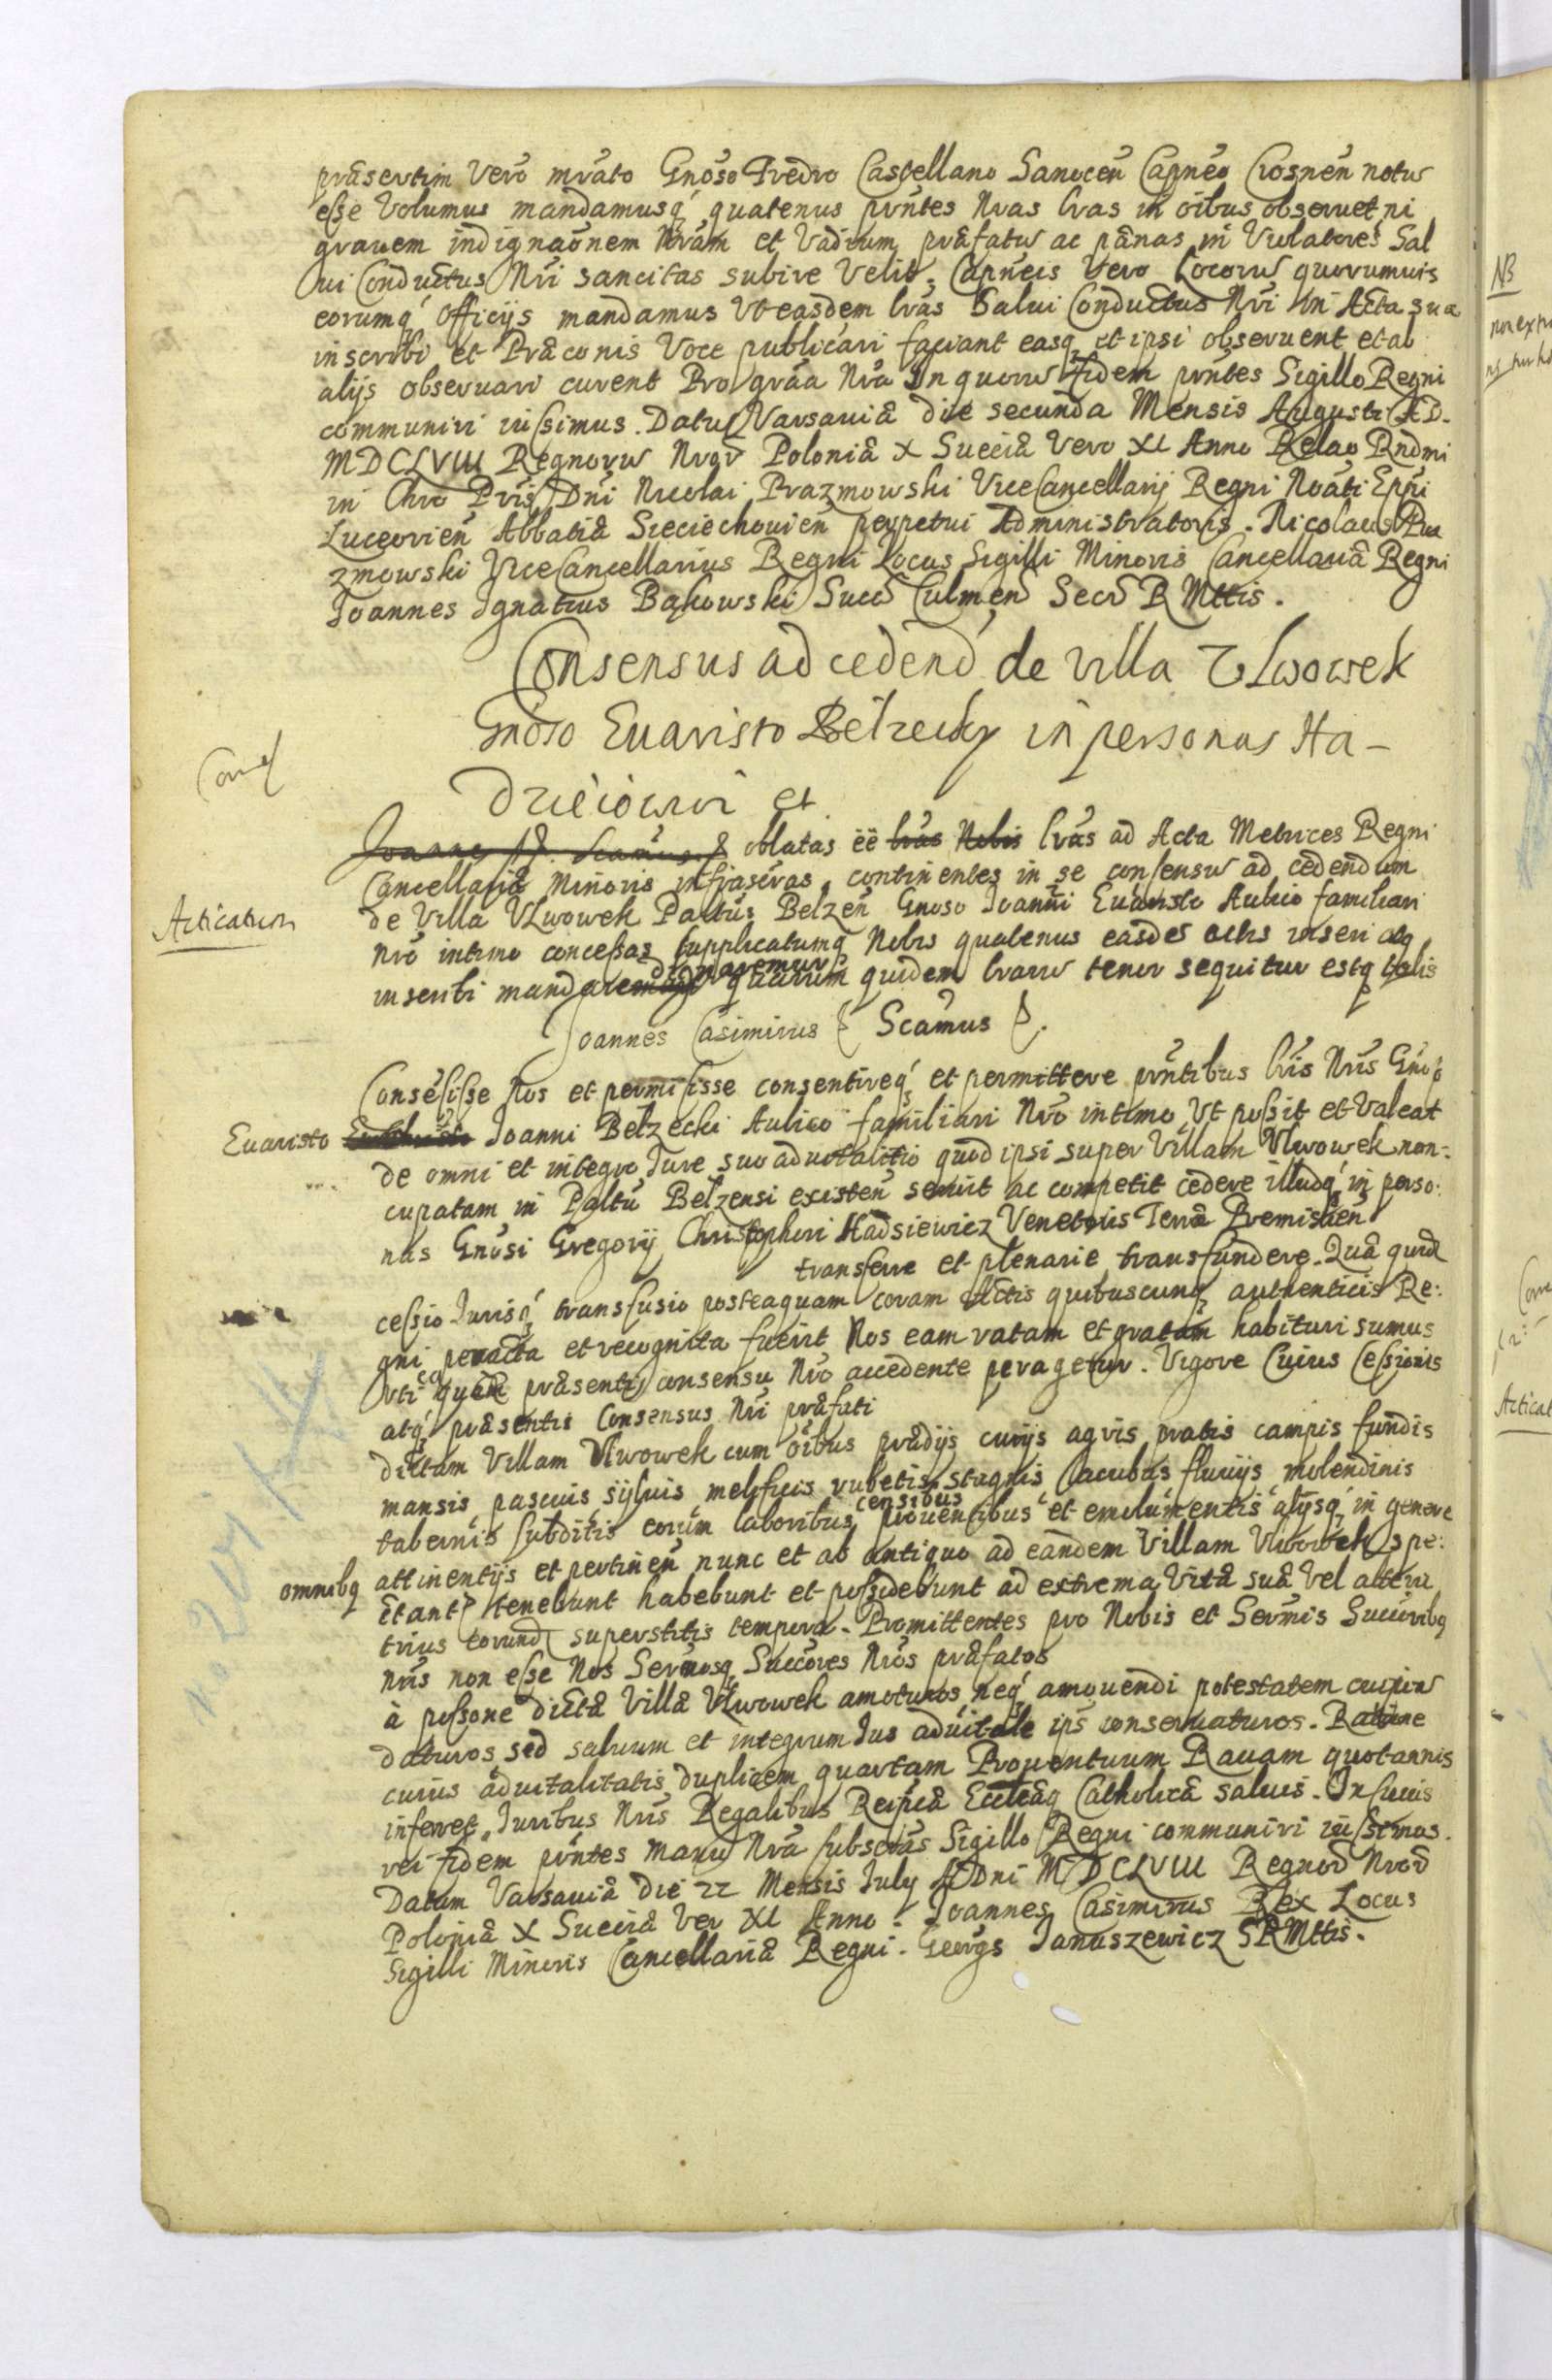 præsertim Vero mrato Gnoso Fredro Castellano Sanocen̄ Capneo Crosnen̄ notu
esse Volumus mandamusq́ quatenus prn̄tes Nras lras in oībus obseruet ni
grauem indignaōnem Nrām et Vadium præfatu ac pænas in Violatores Sal
ui Conductus Nri sancitas subire Velit. Capneis Vero Locoru quorumuis
eorumq́ officijs mandamus Vt easdem lras Salui Conductus Nri in Acta sua
inscribi et Præconis Voce publicari faciant easq et ipsi obseruent et ab
alijs obseruari curent Pro grāa Nrā In quoru fidem prn̄tes Sigillo Regni
communiri iussimus. Datu Varsauiæ die secunda Mensis Augusti AD.
MDCLVIII Regnoru Nror Poloniæ X Sueciæ Vero XI Anno Relao Rndmi
in Chro Pris Dni Nicolai Prazmowski ViceCancellarij Regni Noāti Eppi
Luceorien̄ Abbatiæ Sieciechouien̄ perpetui Administratoris. Nicolaus Pra
zmowski ViceCancellarius Regni Locus Sigilli Minoris Cancellariæ Regni
Joannes Ignatius Bąkowski Succ Culmen Secr R Mttis.
Consensus ad cedend de Villa Vlwowek
Gnoso Euaristo Bełzecky in personas Ha-
dzieiowi et
Joannes Scamus oblatas ēē lras Nobis lras ad Acta Metrices Regni
Cancellariæ Minoris infrascras, continentes in se consensu ad cedendum
Acticatum de Villa VLwowek Paltus Belzen̄ Gnoso Joanni Euaristo Aulico familiari
nro intimo concessas supplicatumq Nobis quatenus easdem actis inseri atq
dignaremur
inscribi mandare quarum quidem lraru tenor sequitur estq talis
Joannes Casimirus Scāmus
Consēsisse Nos et permisisse consentireq́ et permittere prn̄tibus lris Nris Gnoso
Euaristo Joanni Bełzecki Aulico familiari Nro intimo Vt possit et Valeat
de omni et integro Jure suo aduitalitio quod ipsi super Villam Vlwowek non-
cupatam in Paltu Bełzensi existen̄ seruit ac competit cedere illudq́ in perso:
nas Gnosi Gregorij Christopheri Hadsiewicz Venetoris Terræ Premislien̄
transferre et plenarie transfundere. Quæ quid
cessio Jurisq́ transfusio posteaquam coram Actis quibuscunq authenticis Re:
gni peracta et recognita fuerit Nos eam ratam et gratam habituri sumus
Vti ea præsenti consensu Nro accedente peragetur. Vigore Cuius Cessionis
atq́ præsentis Consensus Nri præfati
dictam Villam Vlwowek cum oībus prædijs curijs agris pratis campis fundis
mansis pascuis syluis mellificis rubetis stagnis lacubus fluuijs molendinis
censibus
tabernis subditis eorum laboribus prouentibus et emolumentis alijsq́ in genere
omnibq attinentijs et pertinen̄ nunc et ab antiquo ad eandem Villam Vlwowek spe:
ctant tenebunt habebunt et possidebunt ad extrema Vitæ suæ Vel alteru
trius eorund superstitis tempora. Promittentes pro Nobis et Sermis Succribq
nris non esse Nos Sermosq Succōres Nros præfatos
à possone dictæ Villæ Vlwowek amoturos neq́ amouendi potestatem cuipiu
daturos sed saluum et integrum Jus aduitale ips conseruaturos. Ratione
cuius aduitalitatis duplicem quartam Prouentuum Rauam quotannis
inferret. Juribus Nris Regalibus Reipcæ Eccleæq Catholicæ saluis. In cuius
rei fidem prn̄tes Manu Nra subscras Sigillo Regni communiri iussimus.
Datum Varsauiæ die 22 Mensis July A Dni MDCLVIII Regnor Nror
Poloniæ X Sueciæ Ver XI Anno. Joannes Casimirus Rex Locus
Sigilli Minoris Cancellariæ Regni. Georgs Januszewicz SRMttis.